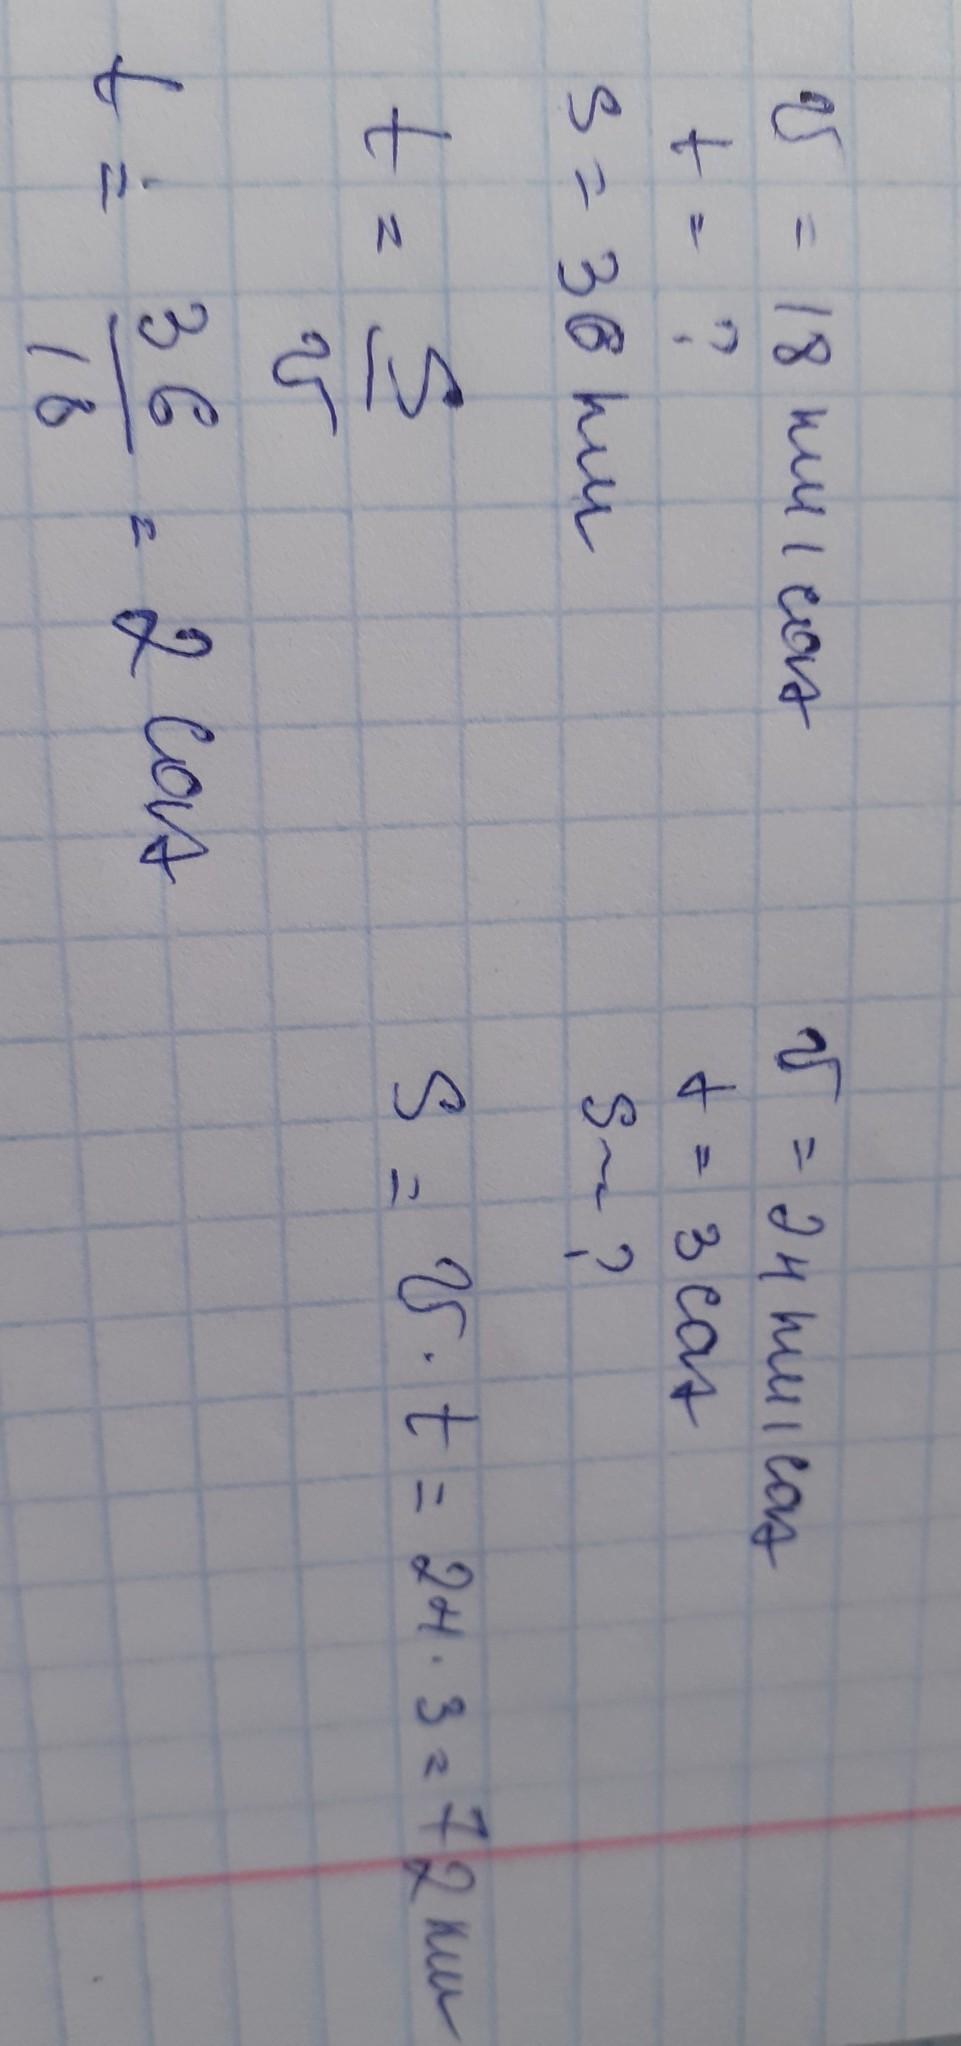 v = 18 км/соат
t = ?
S = 36 км
t = S/v
t = 36/18 = 2 соат
v = 24 км/соат
t = 3 соат
S ~ ?
S = v · t = 24 · 3 = 72 км